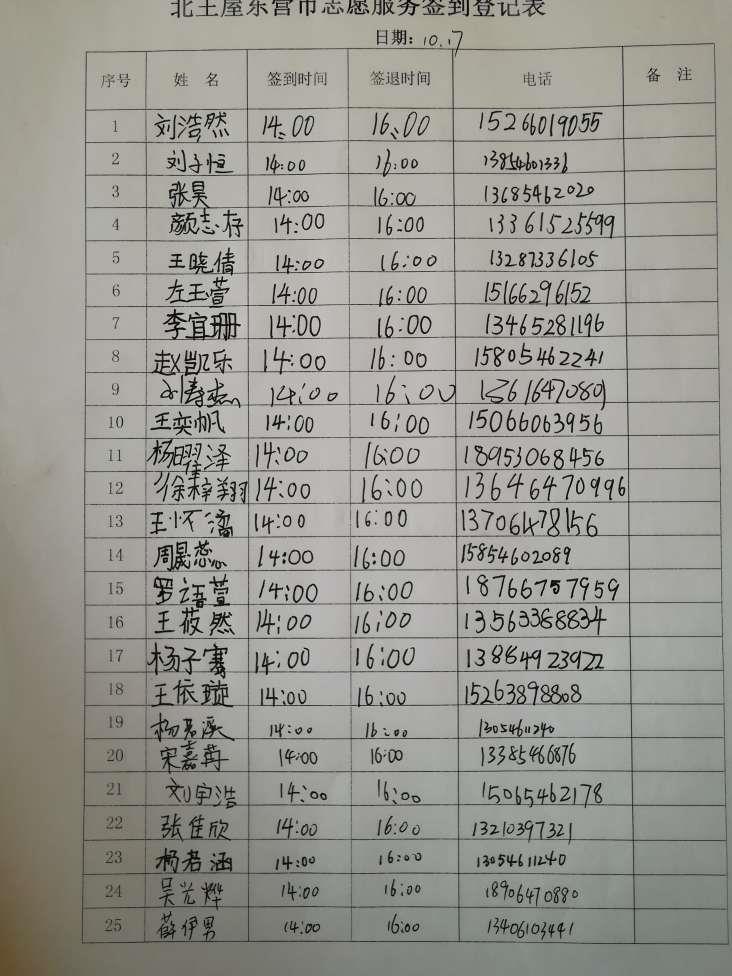 北王屋东营市志愿服务签到登记表
日期：10.17
序号 姓 名 签到时间 签退时间 电话 备 注
1 刘浩然 14:00 16:00 15266019055
2 刘子恒 14:00 16:00 13854601336
3 张昊 14:00 16:00 13685462020
4 颜志存 14:00 16:00 13361525599
5 王晓倩 14:00 16:00 13287336105
6 左玉萱 14:00 16:00 15166296152
7 李宜珊 14:00 16:00 13465281196
8 赵凯乐 14:00 16:00 15805462241
9 14:00 16:00
10 王奕帆 14:00 16:00 15066063956
11 杨曜泽 14:00 16:00 18953068456
12 徐梓翔 14:00 16:00 13646470996
13 王怀 14:00 16:00 13706478156
14 周晟蕊 14:00 16:00 15854602089
15 罗语萱 14:00 16:00 18766757959
16 王莜然 14:00 16:00 13563388834
17 杨子骞 14:00 16:00 13884923922
18 王依璇 14:00 16:00 15263898808
19 杨若溪 14:00 16:00 13054611240
20 宋嘉苒 14:00 16:00 13385466876
21 刘宇浩 14:00 16:00 15065462178
22 张佳欣 14:00 16:00 13210397321
23 杨若涵 14:00 16:00 13054611240
24 吴光烨 14:00 16:00 18906470880
25 薛伊男 14:00 16:00 13406103441